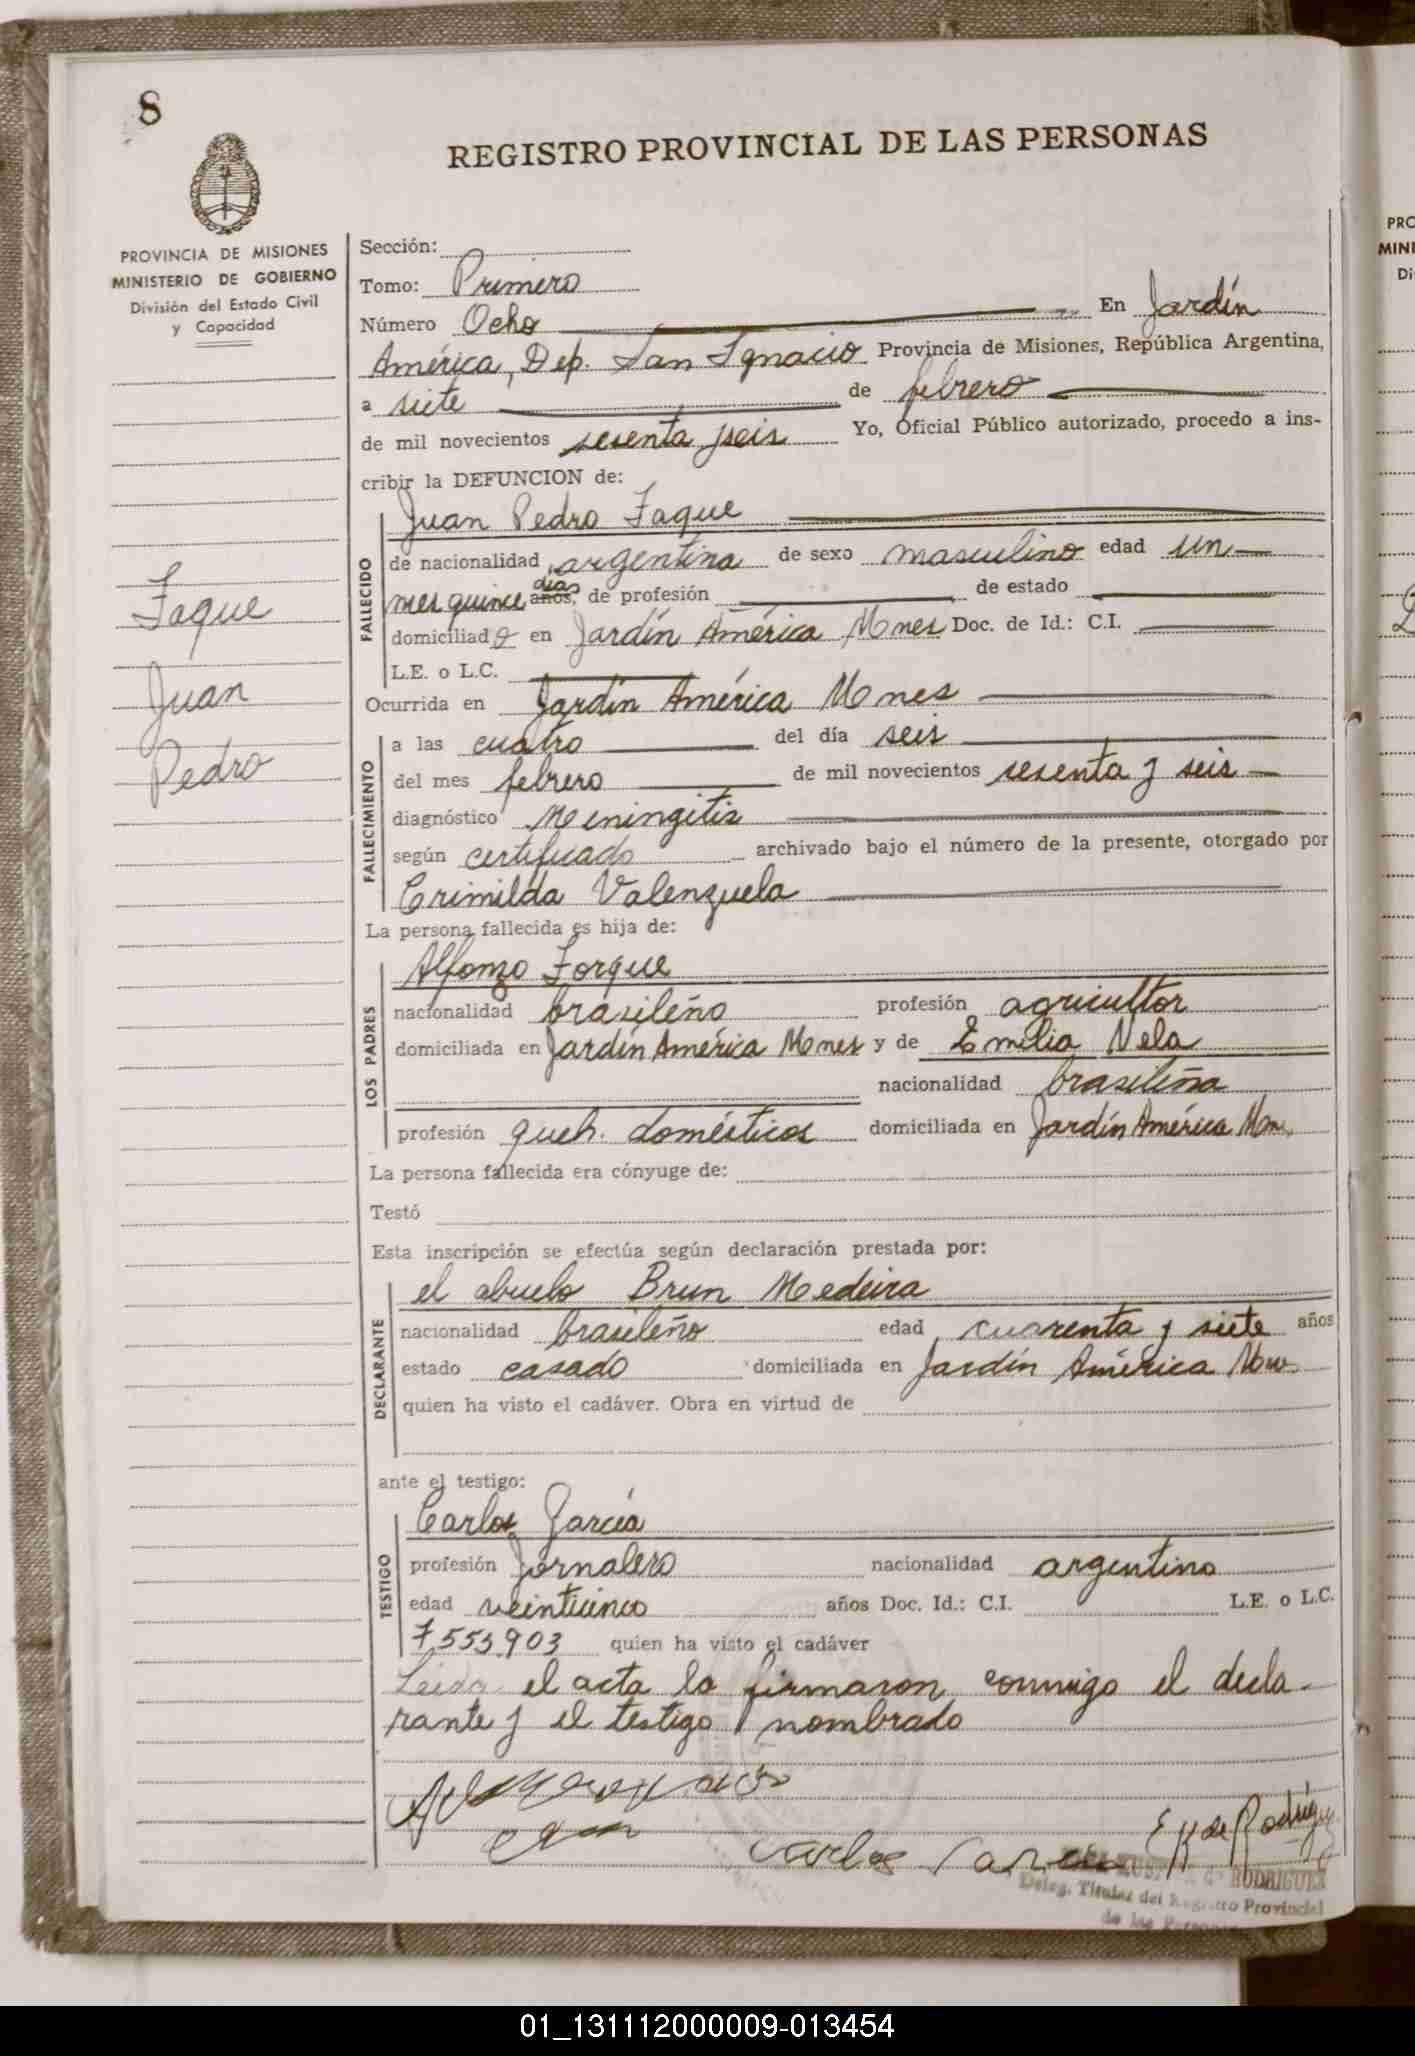 8
REGISTRO PROVINCIAL DE LAS PERSONAS
PROVINCIA DE MISIONES
MINISTERIO DE GOBIERNO
División del Estado Civil
y Capacidad
Faque
Juan
Pedro
Sección:
Tomo: Primero
Número Ocho En Jardín
América, Dep. San Ignacio Provincia de Misiones, República Argentina,
a siete de febrero
de mil novecientos sesenta y seis Yo, Oficial Público autorizado, procedo a ins-
cribir la DEFUNCION de:
Juan Pedro Faque
FALLECIDO
de nacionalidad argentina de sexo masculino edad un
mes quince días años, de profesión de estado
domiciliado en Jardín América Mnes Doc. de Id.: C.I.
L.E. o L.C.
Ocurrida en Jardín América Mnes
FALLECIMIENTO
a las cuatro del día seis
del mes febrero de mil novecientos sesenta y seis
diagnóstico Meningitis
según certificado archivado bajo el número de la presente, otorgado por
Crimilda Valenzuela
La persona fallecida es hija de:
LOS PADRES
Alfonzo Forque
nacionalidad brasileño profesión agricultor
domiciliada en Jardín América Mnes y de Emilia Vela
nacionalidad brasileña
profesión queh. domésticos domiciliada en Jardín América Mn.
La persona fallecida era cónyuge de:
Testó
Esta inscripción se efectúa según declaración prestada por:
DECLARANTE
el abuelo Brun Medeira
nacionalidad brasileño edad cuarenta y siete años
estado casado domiciliada en Jardín América
quien ha visto el cadáver. Obra en virtud de
ante el testigo:
TESTIGO
Carlos García
profesión Jornalero nacionalidad argentino
edad veinticinco años Doc. Id.: C.I. L.E. o L.C.
7.553.903 quien ha visto el cadáver
Leida el acta la firmaron conmigo el decla-
rante y el testigo nombrado
Carlos Garcia
E K de Rodríguez
de RODRIGUEZ
Deleg. Titular del Registro Provincial
de las
PRO
MINI
Di
01_131112000009-013454